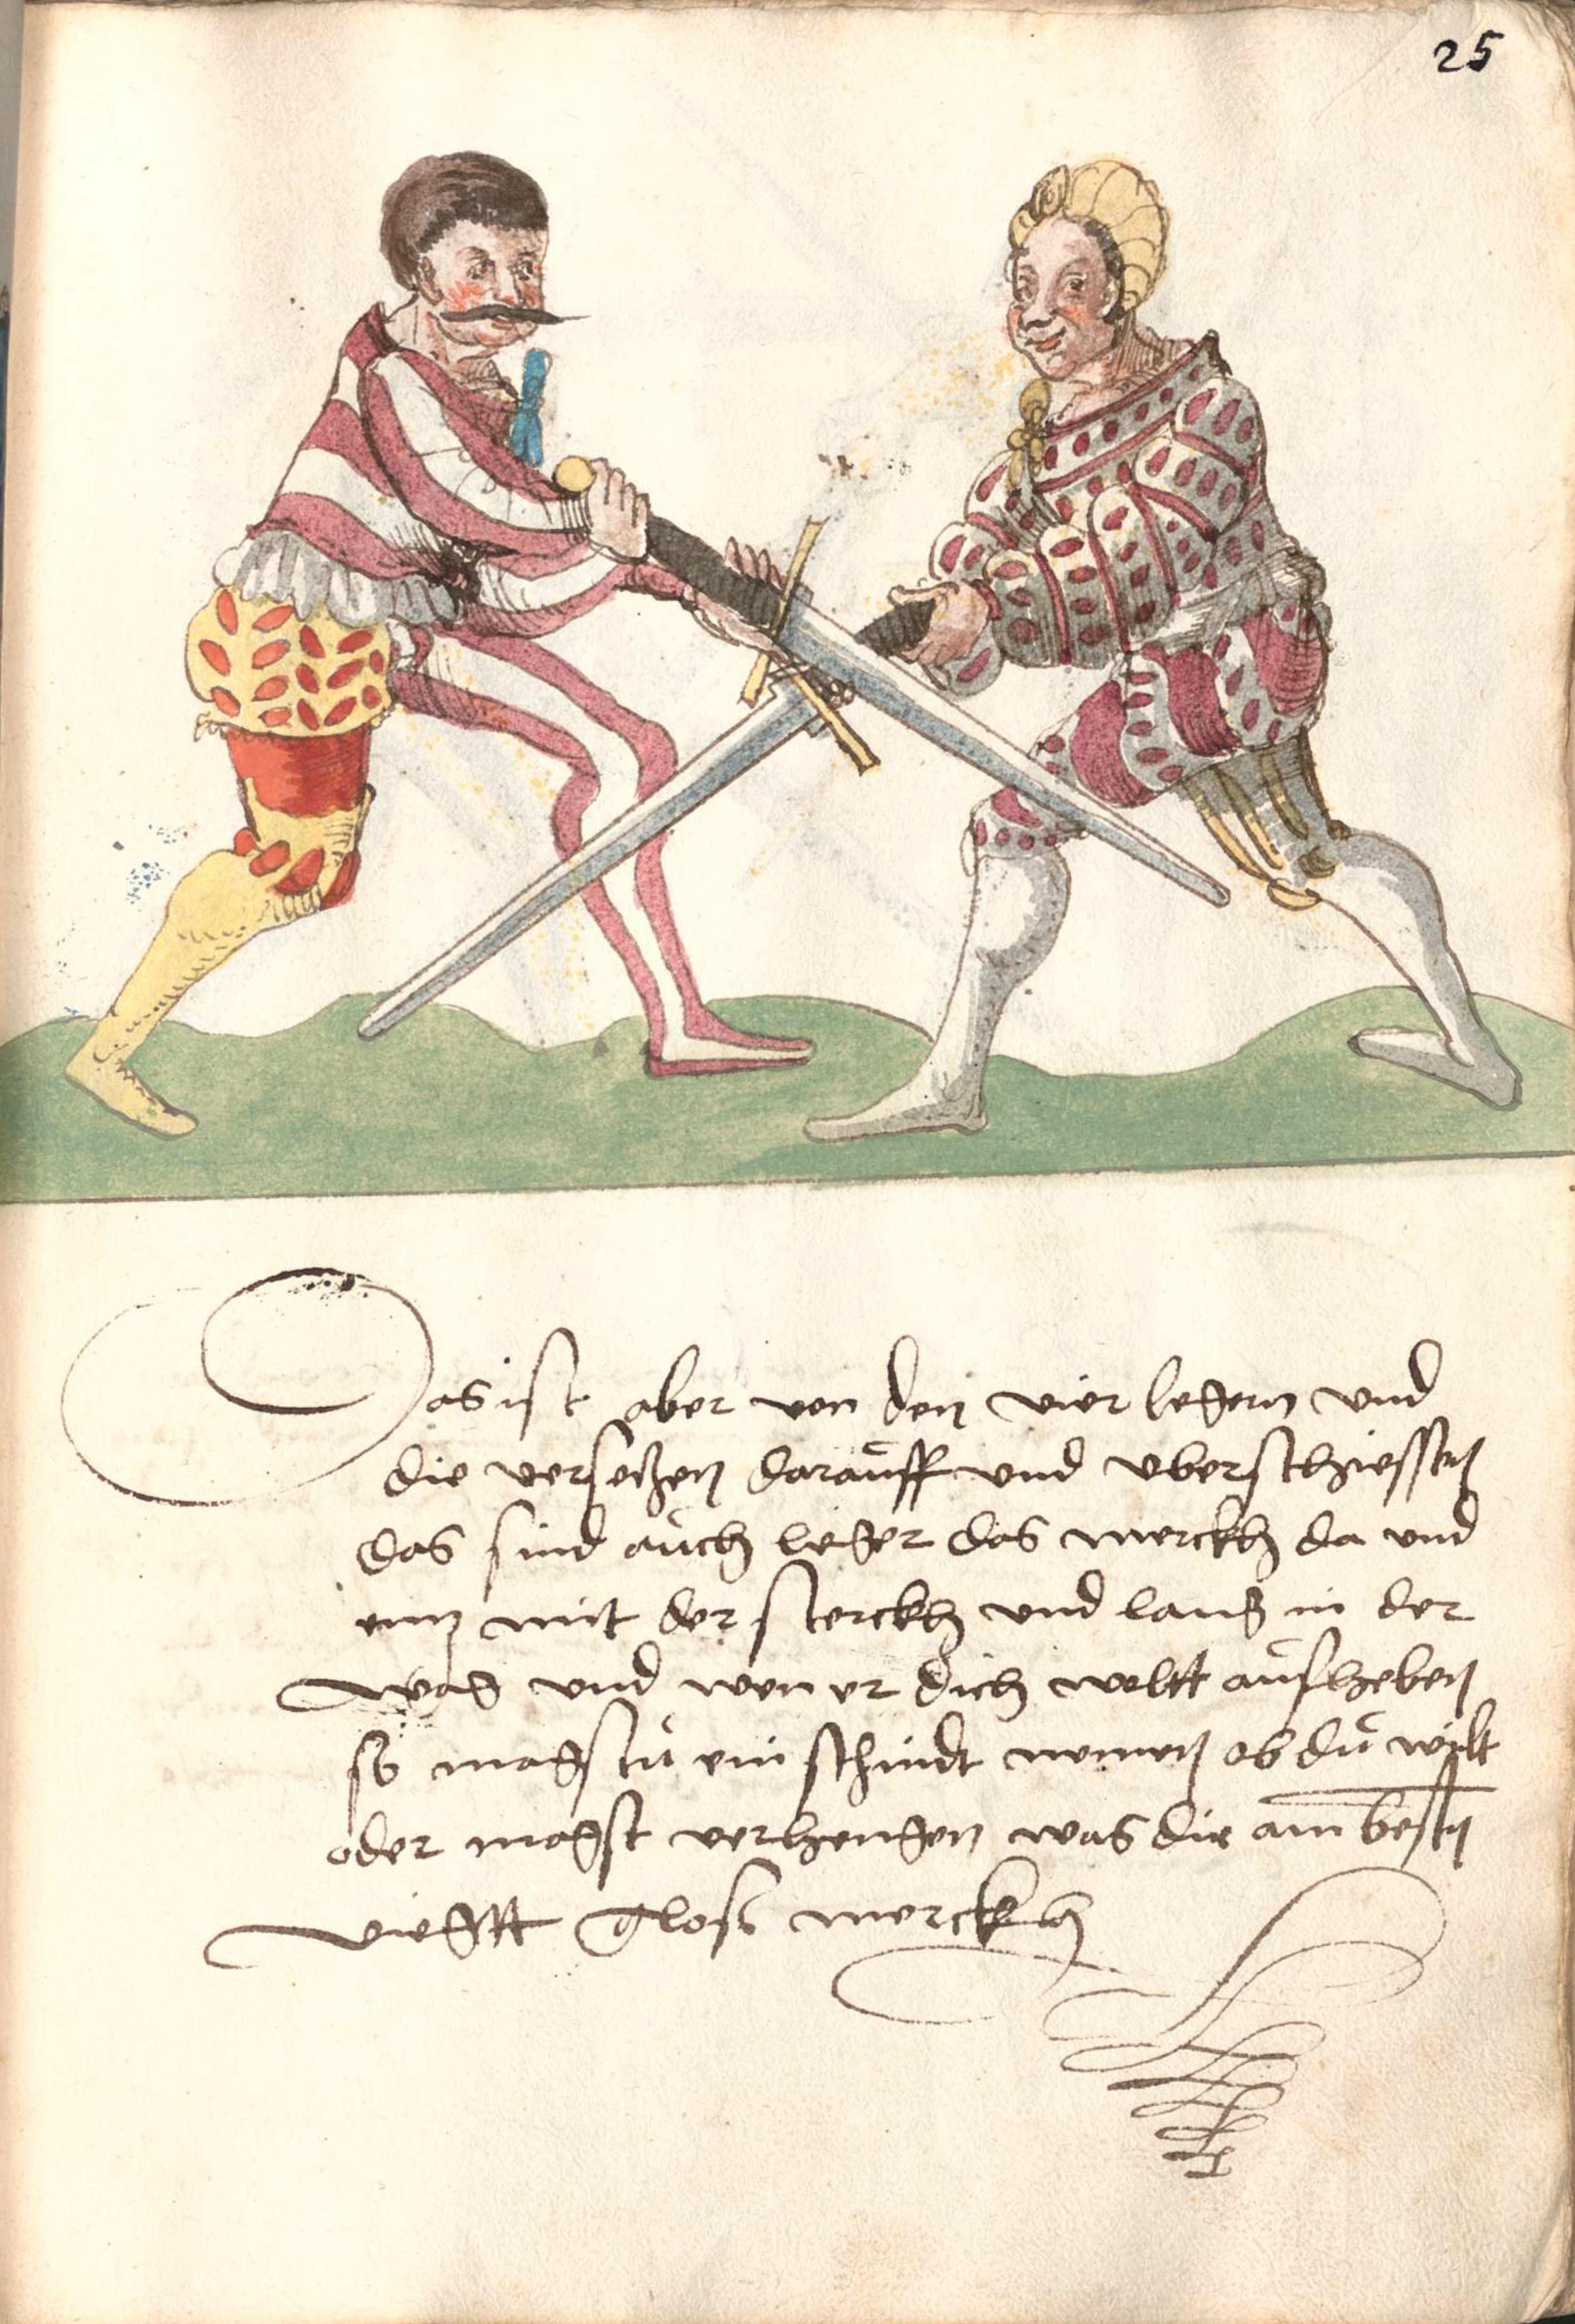 25
Das ist aber von den vier legern und
die versetzen darauff und uberschiessen
das sind auch leger das merckh da und
mit der sterckh und lang in der
wag und wen er dich wolt aufheben
so magstu ein schnidt nemen ob du wilt
oder magst verhengen was die am besten
viegtt glosa merckh